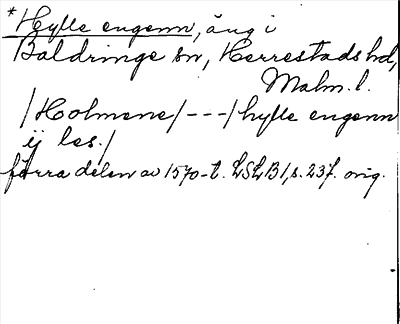 *Hylle engenn, äng i
Baldringe sn, Herrestads hd,
Malm. l.
/Holmene/---/hylle engenn
ij les./
förra delen av 1570-t. LSLB1, s. 237. orig.